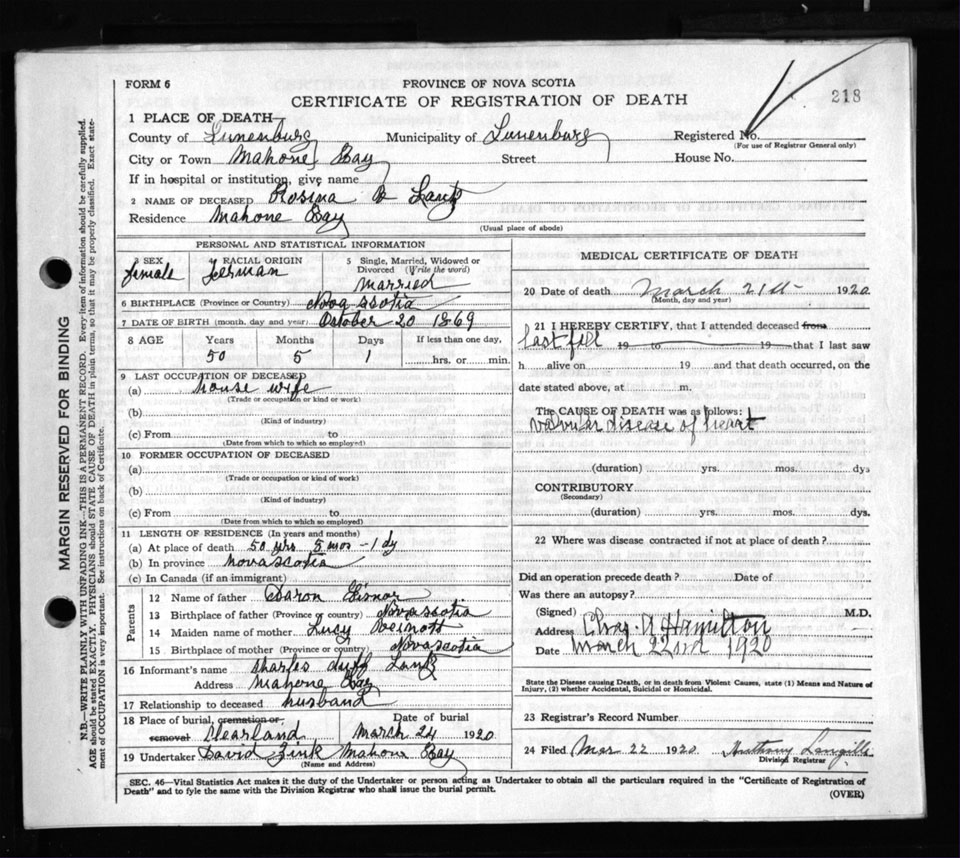 FORM 6
PROVINCE OF NOVA SCOTIA
CERTIFICATE OF REGISTRATION OF DEATH
218
1 PLACE OF DEATH—
County of Lunenburg Municipality of Lunenburg Registered No.
(For use of Registrar General only)
City or Town Mahone Bay Street House No.
If in hospital or institution, give name
2 NAME OF DECEASED Rosina B Lantz
Residence Mahone Bay
(Usual place of abode)
PERSONAL AND STATISTICAL INFORMATION
3 SEX female
4 RACIAL ORIGIN German
5 Single, Married, Widowed or Divorced (Write the word) Married
6 BIRTHPLACE (Province or Country) Nova Scotia
7 DATE OF BIRTH (month, day and year) October 20 1869
8 AGE Years Months Days If less than one day,
50 5 1 hrs. or min.
9 LAST OCCUPATION OF DECEASED
(a) House wife
(Trade or occupation or kind or work)
(b)
(Kind of industry)
(c) From to
(Date from which to which so employed)
10 FORMER OCCUPATION OF DECEASED
(a)
(Trade or occupation or kind of work)
(b)
(Kind of industry)
(c) From to
(Date from which to which so employed)
11 LENGTH OF RESIDENCE (In years and months)
(a) At place of death 50 yrs 5 mos - 1 dy
(b) In province Nova Scotia
(c) In Canada (if an immigrant)
Parents
12 Name of father Aaron Eisnor
13 Birthplace of father (Province or country) Nova Scotia
14 Maiden name of mother Lucy Veinott
15 Birthplace of mother (Province or country) Nova Scotia
16 Informant's name Charles Lantz
Address Mahone Bay
17 Relationship to deceased husband
18 Place of burial, cremation or, removal Clearland
Date of burial March 24 1920
19 Undertaker David Zink Mahone Bay
(Name and Address)
MEDICAL CERTIFICATE OF DEATH
20 Date of death March 21st 1920
(Month, day and year)
21 I HEREBY CERTIFY, that I attended deceased from
last fall 19 to 19 that I last saw
h alive on 19 and that death occurred, on the
date stated above, at m.
The CAUSE OF DEATH was as follows:
Valvular disease of heart
(duration) yrs. mos. dys
CONTRIBUTORY
(Secondary)
(duration) yrs. mos. dys.
22 Where was disease contracted if not at place of death?
Did an operation precede death? Date of
Was there an autopsy?
(Signed) Chas. A Hamilton M.D.
Address
Date March 22nd 1920
State the Disease causing Death, or in death from Violent Causes, state (1) Means and Nature of
Injury, (2) whether Accidental, Suicidal or Homicidal.
23 Registrar's Record Number
24 Filed Mar 22 1920 Anthony Langille
Division Registrar
SEC. 46—Vital Statistics Act makes it the duty of the Undertaker or person acting as Undertaker to obtain all the particulars required in the "Certificate of Registration of
Death" and to fyle the same with the Division Registrar who shall issue the burial permit.
(OVER)
MARGIN RESERVED FOR BINDING
N.B.—WRITE PLAINLY WITH UNFADING INK—THIS IS A PERMANENT RECORD. Every item of information should be carefully supplied.
AGE should be stated EXACTLY. PHYSICIANS should STATE CAUSE OF DEATH in plain terms, so that it may be properly classified. Exact state-
ment of OCCUPATION is very important. See instructions on back of Certificate.